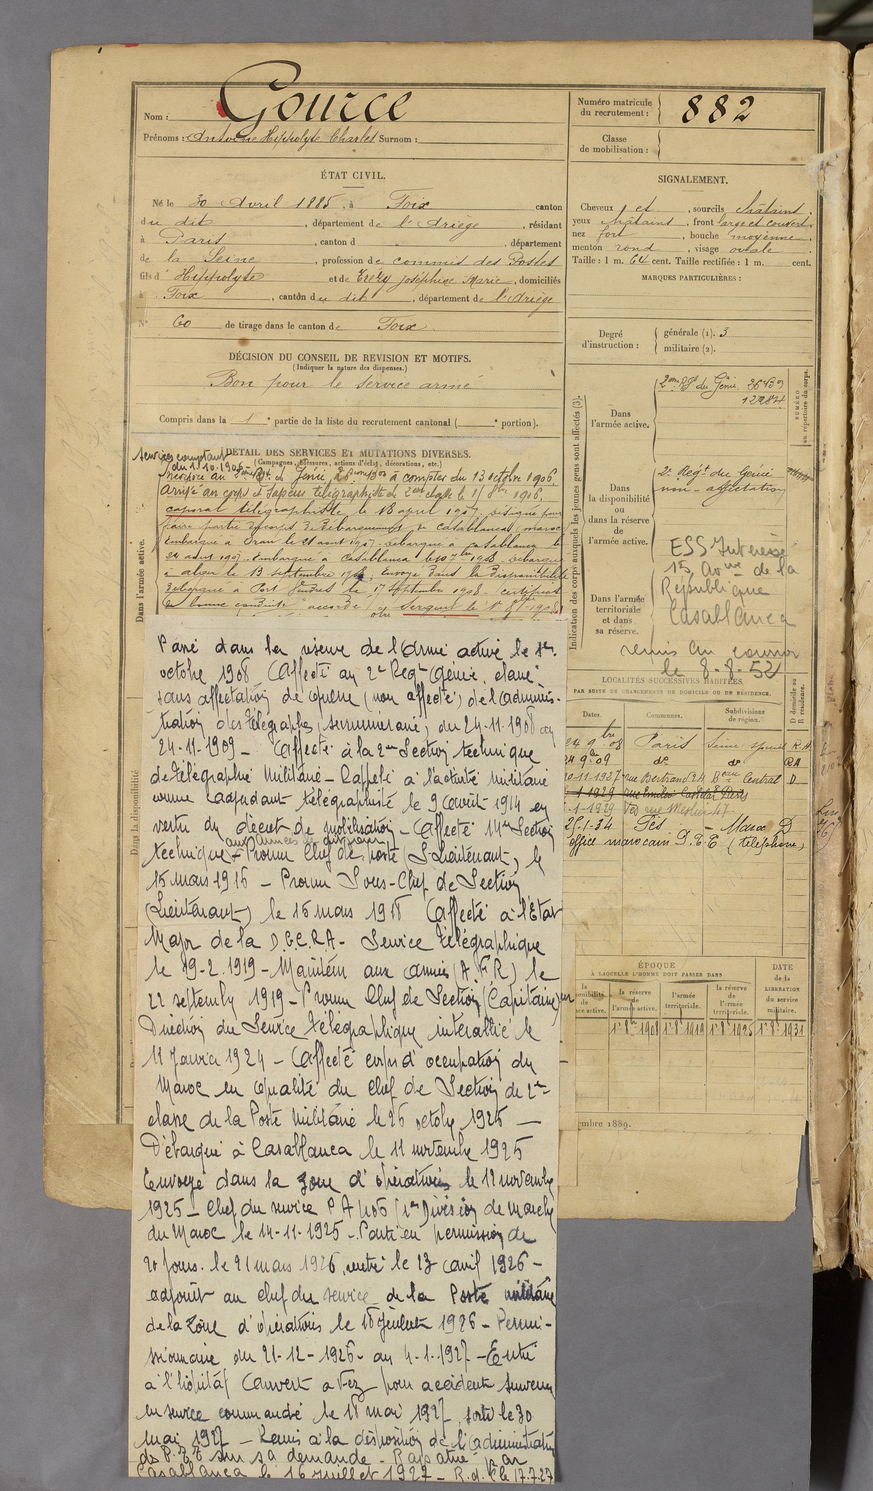 Nom : Gource
Prénoms : Antoine Hippolyte Charles Surnom :
ÉTAT CIVIL.
Né le 30 Avril 1885, à Foix canton
du dit, département de l'Ariège, résidant
à Paris, canton d , département
de la Seine, profession de commis des Postes
fils d'Hippolyte et de Joséphine Marie, domiciliés
à Foix, canton du dit, département de l'Ariège
N° 60 de tirage dans le canton de Foix
DÉCISION DU CONSEIL DE REVISION ET MOTIFS.
(Indiquer la nature des dispenses.)
Bon pour le service armé
Compris dans la 1e partie de la liste du recrutement cantonal ( e portion).
Numéro matricule
du recrutement : 882
Classe
de mobilisation :
SIGNALEMENT.
Cheveux et, sourcils châtains
yeux châtains, front large et couvert
nez fort, bouche moyenne
menton rond, visage ovale
Taille : 1 m. 64 cent. Taille rectifiée : 1 m. cent.
MARQUES PARTICULIÈRES :
Degré
d'instruction :
générale (1). 3
militaire (2).
Indication des corps auxquels les jeunes gens sont affectés (3).
NUMÉRO
au répertoire du corps.
Dans
l'armée active.
du Génie
Dans
la disponibilité
ou
dans la réserve
de
l'armée active.
2e Régt du Génie
non-affectation
Dans l'armée
territoriale
et dans
sa réserve.
ESS Intéressé
15 Avue de la
République
Casablanca
remis au courrier
le 8-8-52
DÉTAIL DES SERVICES ET MUTATIONS DIVERSES.
(Campagnes, blessures, actions d'éclat, décorations, etc.)
Dans l'armée active.
Services comptant
du 1.10.1906
Génie à compter du 13 octobre 1906
Arrivé au corps et sapeur télégraphiste de 2e classe le 1906
caporal télégraphiste le 18 avril 1907. Désigné pour
faire partie du corps de débarquement de Casablanca (Maroc)
Embarqué à Oran le 21 août 1907. Débarqué à Casablanca le
22 août 1907. Embarqué à Casablanca 1908. Débarqué
à Oran le 13 septembre 1908. Envoyé dans la disponibilité
Port Vendres le 17 septembre 1908. Certificat
de bonne conduite accordé. Sergent le 1908
Dans la disponibilité
Passé dans la réserve de l'Armée active le 1er
octobre 1908 Affecté au 2e Régt Génie, classé
sans affectation de guerre (non affecté) de l'adminis-
tration des télégraphes du 24-11-1908 au
24-11-1909 - Affecté à la 2me Section technique
de télégraphie Militaire - Rappelé à l'activité Militaire
comme adjudant télégraphiste le 9 août 1914 en
vertu du décret de mobilisation - Affecté 14me Section
technique - Promu Chef de poste (S-Lieutenant) le
15 mars 1915 - Promu Sous-Chef de Section
(Lieutenant) le 15 mars 1918 Affecté à l'Etat
Major de la D.G.C.R.A - Service Télégraphique
le 19-2-1919 - Maintenu aux armées (A.F.R) le
22 septembre 1919 - Promu Chef de Section (Capitaine)
Direction du Service Télégraphique interallié le
11 Janvier 1924 - Affecté corps d'occupation du
Maroc en qualité du Chef de Section de 2me
classe de la Poste Militaire le 26 octobre 1925 -
Débarqué à Casablanca le 11 novembre 1925
Envoyé dans la zone d'opérations le 12 novembre
1925 - Chef du service P A (1re Division de marche
du Maroc le 14-11-1925 - Parti en permission de
20 jours le 21 mars 1926, rentré le 23 avril 1926 -
adjoint au chef du service de la Poste militaire
de la Zone d'opérations le 1926 - Permis-
sionnaire du 21-12-1926 au 4-1-1927 - Entré
à l'hôpital Cauvert à Fez pour accident survenu
en service commandé le 18 mai 1927, sorti le 30
mai 1927 - Remis à la disposition de l'administration
des P.T.T sur sa demande - Rapatrié par
Casablanca le 16 juillet 1927 - R.d.C le 17.7.27
LOCALITÉS SUCCESSIVES HABITÉES,
PAR SUITE DE CHANGEMENTS DE DOMICILE OU DE RÉSIDENCE.
Dates. Communes. Subdivisions
de région. D domicile ou
R résidence.
24 9bre 08 Paris Seine R
09 do do RA
10-11-1927 rue Bertrand 24 Bau Central D
1-1929 rue Emilio Castelar Paris
-1-1929
25-1-34 Fès - Maroc D
office marocain P.T.T (téléphone)
ÉPOQUE
À LAQUELLE L'HOMME DOIT PASSER DANS
la réserve
de
l'armée active. l'armée
territoriale. la réserve
de
l'armée
territoriale.
DATE
de la
LIBÉRATION
du service
militaire.
1er 8bre 1908 1er 8bre 1919 1er 8bre 1925 1er 8bre 1931
embre 1889.